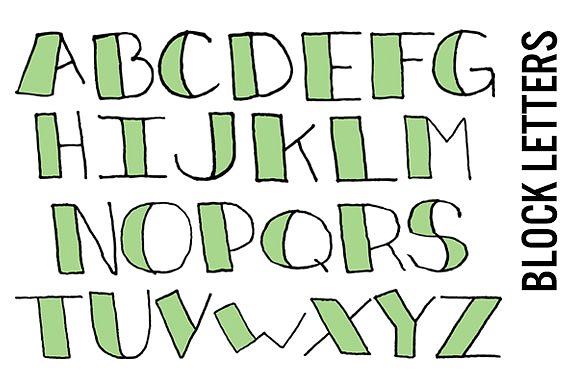 ABCDEFG
HIJKLM
NOPQRS
TUVWXYZ
BLOCK LETTERS